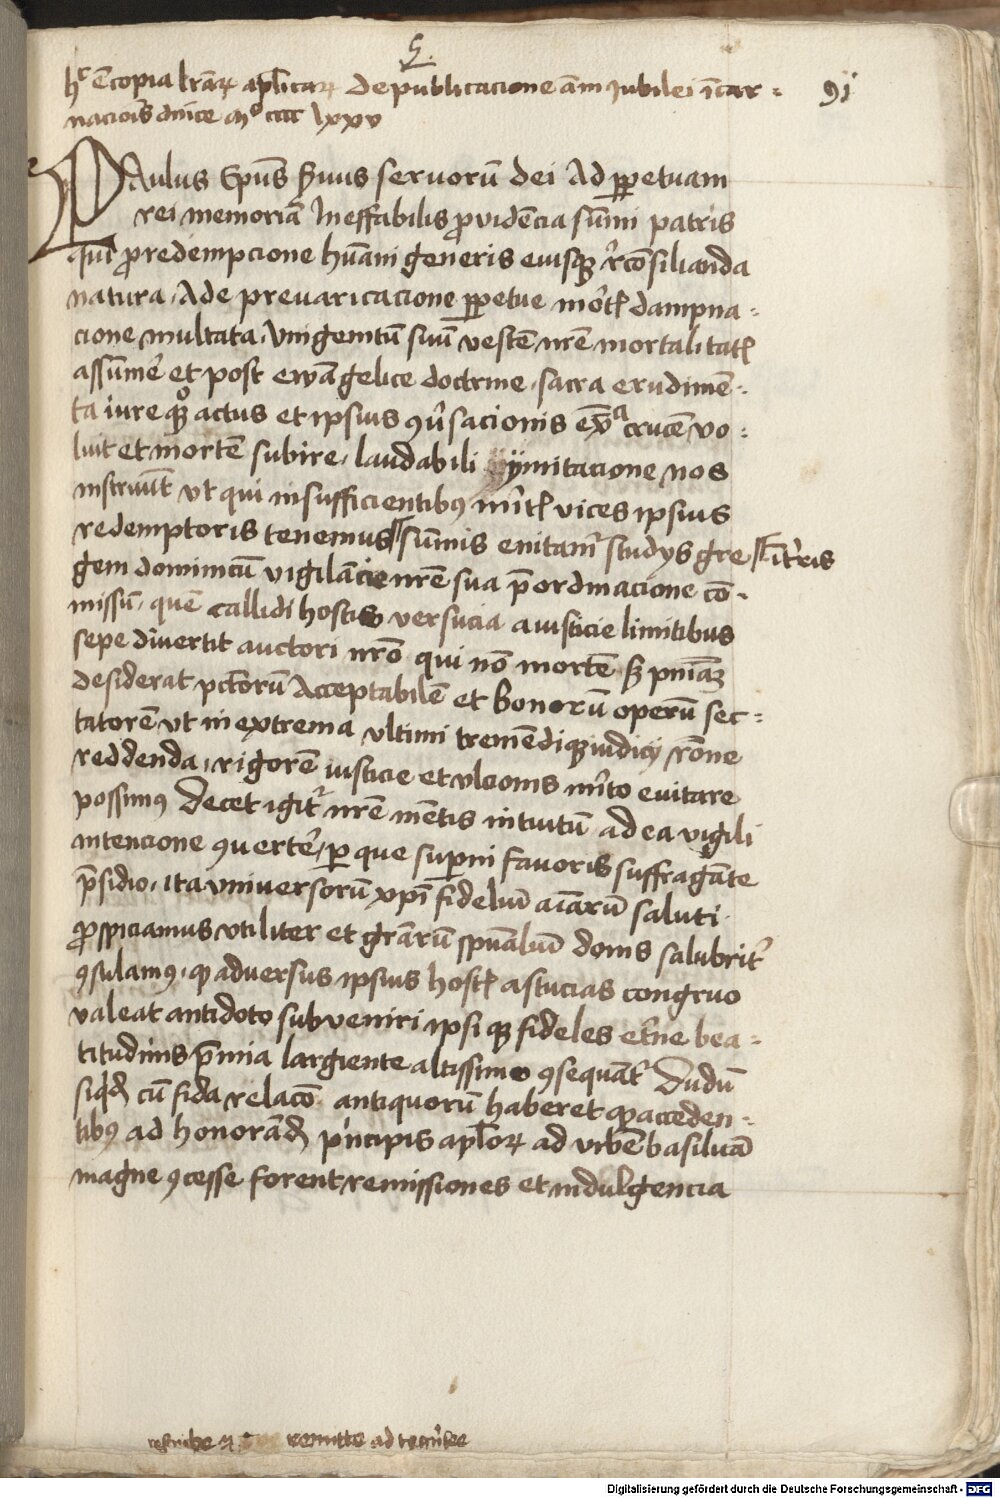 5.
hc est copia lrãrꝝ aplicarꝝ de publicacione ãni Jubilei ĩcar-
91
nacionis dnice Mº cccc lxxv
PAulus Epũs Servus servorũ dei Ad ꝑpetuam
rei memoriã Ineffabilis ꝓvidẽcia sũmi patris
qui ꝓ redempcione hũani generis eiusqꝫ rẽcõsilianda
natura, Ade prevaricacione ꝑpetue mortꝭ dampna-
cione multata, Unigenitũ suũ vestẽ nr̃e mortalitatꝭ
assũmer̃ et post ewãgelice doctrine, sacra erudimẽ-
ta iure qꝫ actus et ipsius ꝯv̾sacionis crucẽ vo-
luit et mortẽ subire, laudabili ymitacione nos
instruũt ut qui insufficientibꝰ mr̃itꝭ vices ipsius
redemptoris tenemus sũmis enitam̃ studys gre iter̾is
gem dominicũ vigilãcie nr̃e sua p̃ordinacione cõ-
missũ, quẽ callidi hostis versucia a iusticie limitibus
sepe divertit auctori nr̃o qui nõ mortẽ sꝫ pniãꝫ
desiderat pctorũ Acceptabilẽ et bonorũ operũ sec-
tatorẽ ut in extrema ultimi tremẽdiqꝫ iudicij rõne
reddenda, rigorẽ iusticie et ulcionis mr̃ito evitare
possimꝰ Decet igit̃ nr̃e mẽtis intuitũ ad ea vigili
intencione ꝯverter̃, ꝑ que sup̃ni favoris suffragãte
p̃sidio, ita universorũ xpĩ fideliũ aĩarũ saluti
ꝓspiciamus utiliter et grãrũ spũaliũ donis salubrit̃
ꝯsulamꝰ, qꝫ adversus ipsius hostꝭ astucias congruo
valeat antidoto subveniri ipsi qꝫ fideles et̃ne bea-
titudinis p̃mia largiente altissimo ꝯsequãt̃ Dudũ
siqdẽ cũ fida relacõ antiquorũ haberet qꝫ acceden-
tibꝰ ad honorãdã pñcipis aplorꝝ ad urbẽ basilicã
magne ꝯcesse forent remissiones et indulgencia
remitte ad
Digitalisierung gefördert durch die Deutsche Forschungsgemeinschaft - DFG